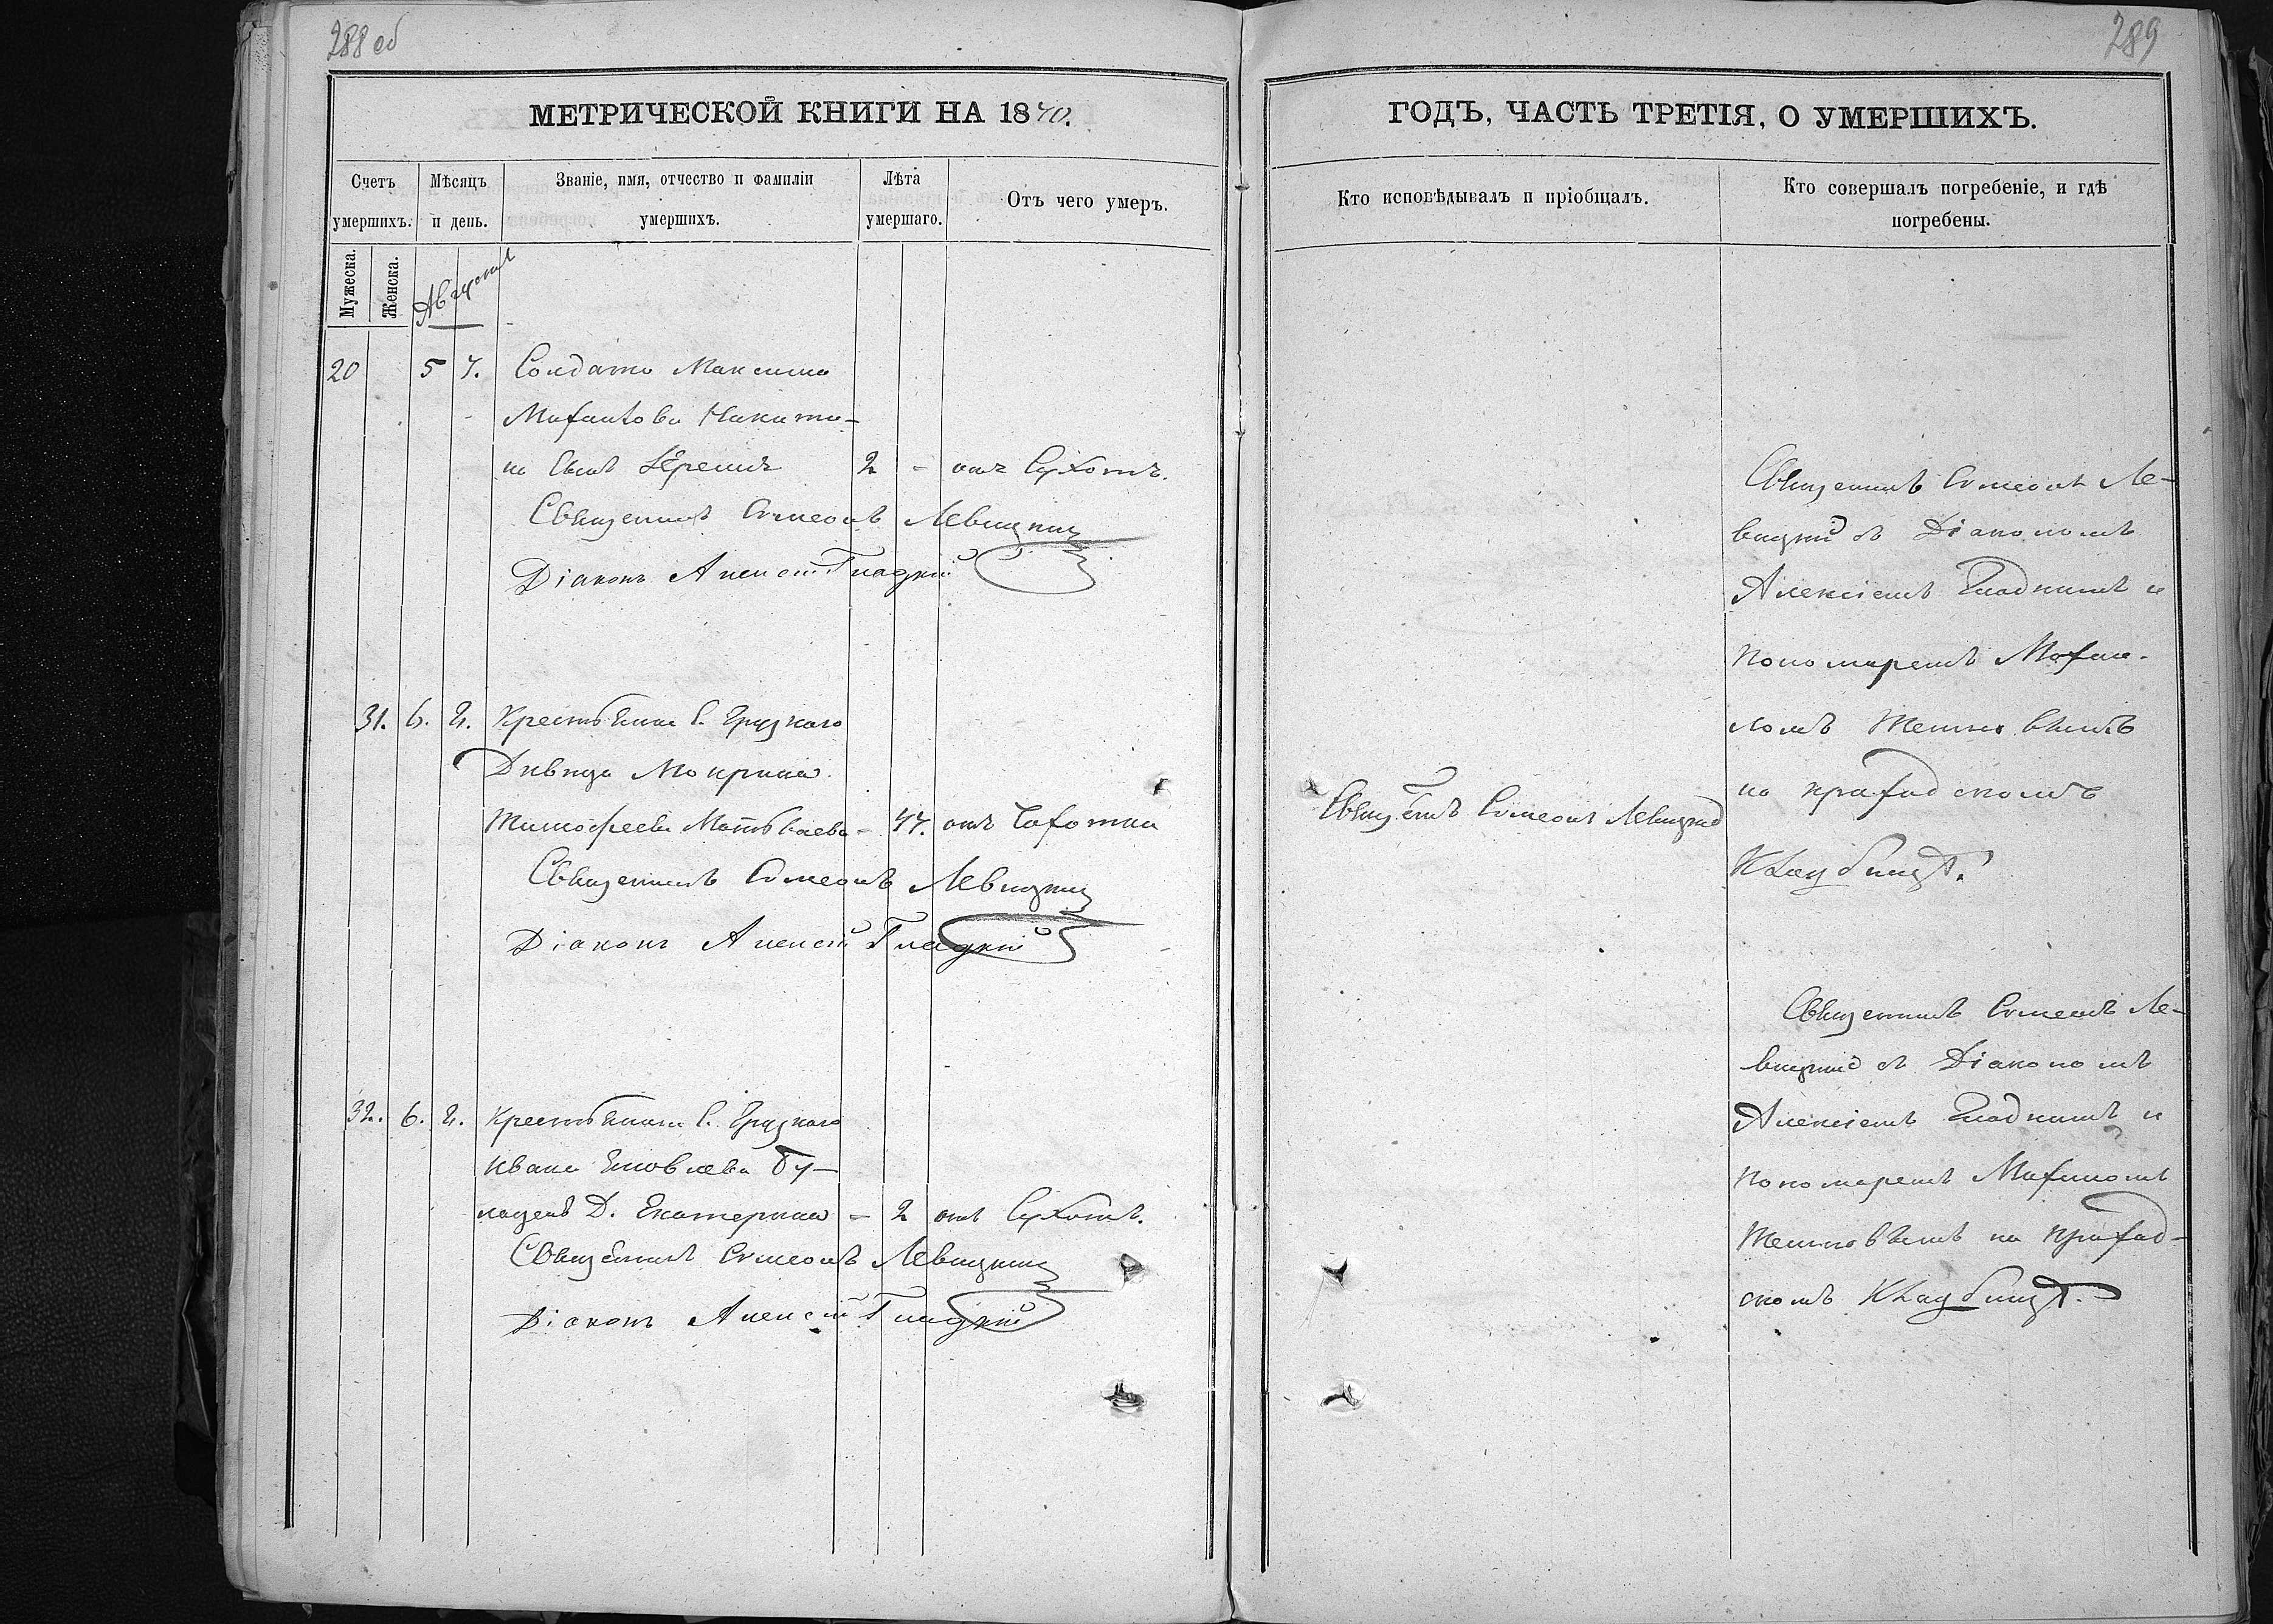 288 об
289
МЕТРИЧЕСКОЙ КНИГИ НА 1870.
Счетъ умершихъ.
Мѣсяцъ и день.
Званіе, имя, отчество и фамиліи умершихъ.
Лѣта умершаго.
Отъ чего умеръ.
Мужеска.
Женска.
Августъ
20 5 7. Солдата Максима
Михаилова Никити-
на сынъ Ефремъ 2 - отъ Сухотъ.
Священникъ Симеонъ Левицкій
Діаконъ Алексій Гладкій
31. 6. 8. Крестьянка С. Грузкаго
Дѣвица Мокрина
Тимофеева Матвѣева - 47. отъ Чахотки
Священникъ Симеонъ Левицкій
Діаконъ Алексій Гладкій
32. 6. 8. Крестьянина С. Грузкаго
Ивана Яковлева
Д. Екатерина - 2 отъ Сухотъ.
Священникъ Симеонъ Левицкій
Діаконъ Алексій Гладкій
ГОДЪ, ЧАСТЬ ТРЕТІЯ, О УМЕРШИХЪ.
Кто исповѣдывалъ и пріобщалъ.
Кто совершалъ погребеніе, и гдѣ погребены.
Священникъ Симеонъ Левицкій
Священникъ Симеонъ Ле-
вицкій съ Діакономъ
Алексіемъ Гладкимъ и
Пономаремъ Михаи-
ломъ
на приходскомъ
Кладбищѣ.
Священникъ Симеонъ Ле-
вицкій съ Діакономъ
Алексіемъ Гладкимъ и
Пономаремъ Михаиломъ
на приход-
скомъ Кладбищѣ.